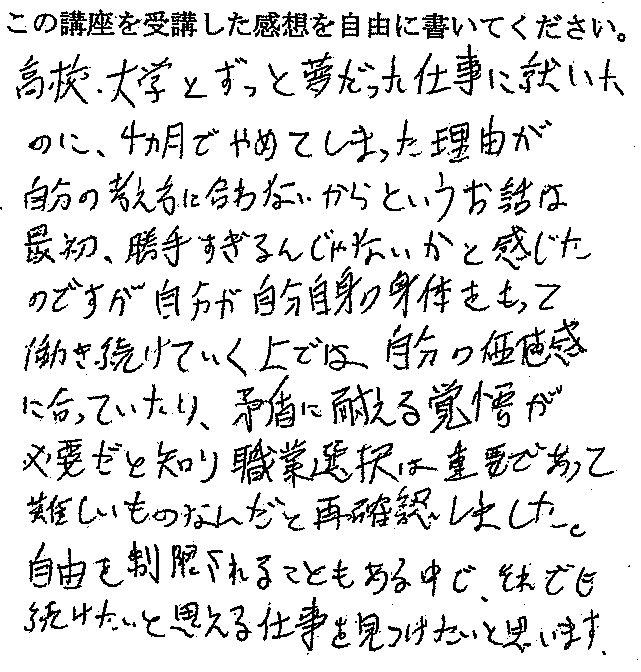 この講座を受講した感想を自由に書いてください。
高校・大学とずっと夢だった仕事に就いた
のに、4カ月でやめてしまった理由が
自分の考え方に合わないからというお話は
最初、勝手すぎるんじゃないかと感じた
のですが自分が自分自身の身体をもって
働き続けていく上では、自分の価値感
に合っていたり、矛盾に耐える覚悟が
必要だと知り職業選択は重要であって
難しいものなんだと再確認しました。
自由を制限されることもある中で、それでも
続けたいと思える仕事を見つけたいと思います。